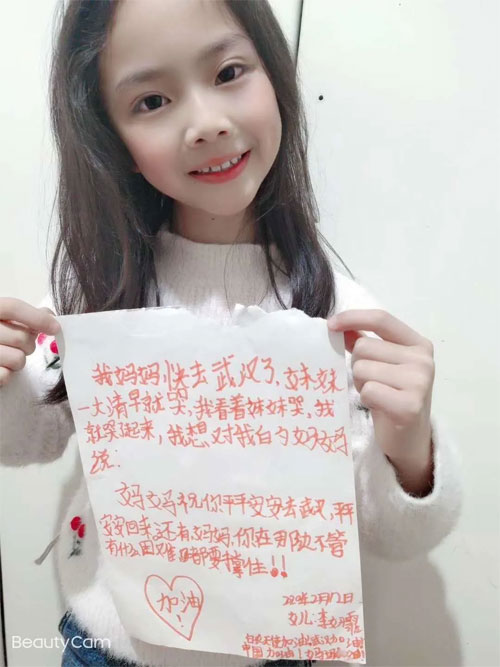 我妈妈快去武汉了,妹妹
一大清早就哭,我看着妹妹哭,我
就哭起来,我想对我的妈妈
说:
妈妈祝你平平安安去武汉,平
安安回来,还有妈妈,你在那边不管
有什么困难都要撑住!!
加油
!
2月12日
女儿:李
白衣天使加油武汉加油
中国加油!妈妈加油
BeautyCam